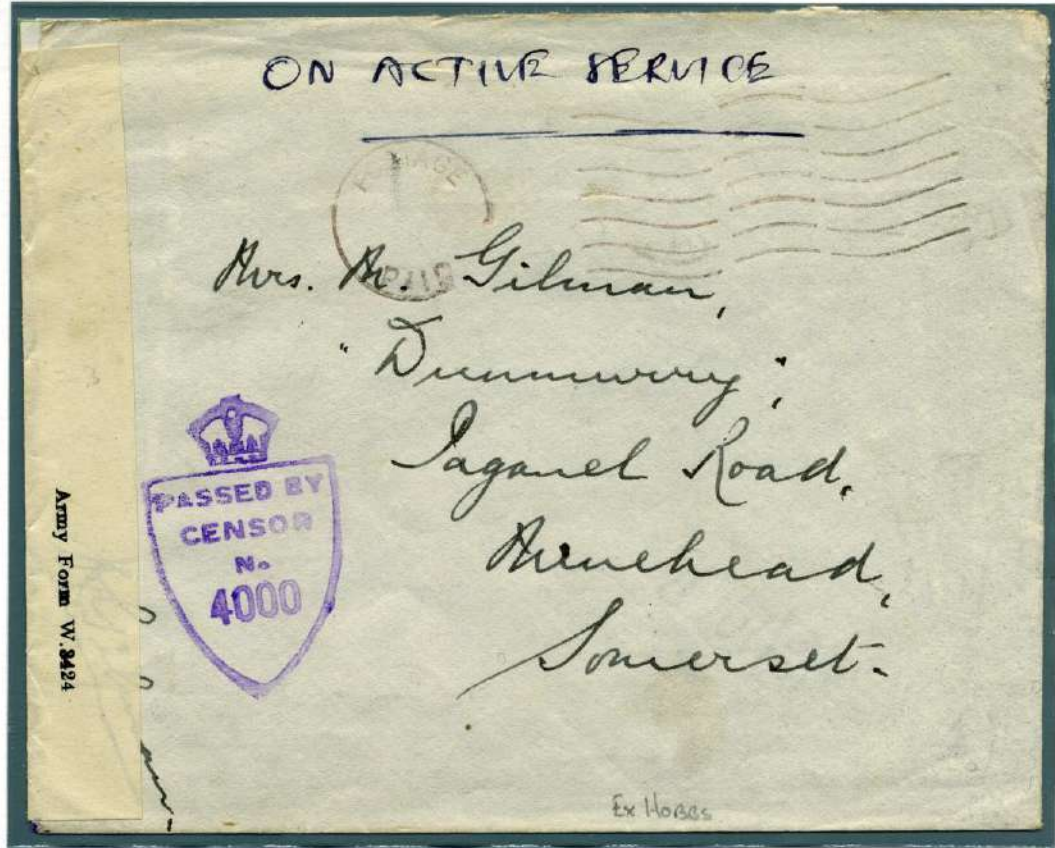 ON ACTIVE SERVICE
POSTAGE
PAID
Mrs. M. Gilman,
"Dunmurry",
Paganel Road,
Minehead,
Somerset.
PASSED BY
CENSOR
No.
4000
Army Form W.3424
Ex HOBBS